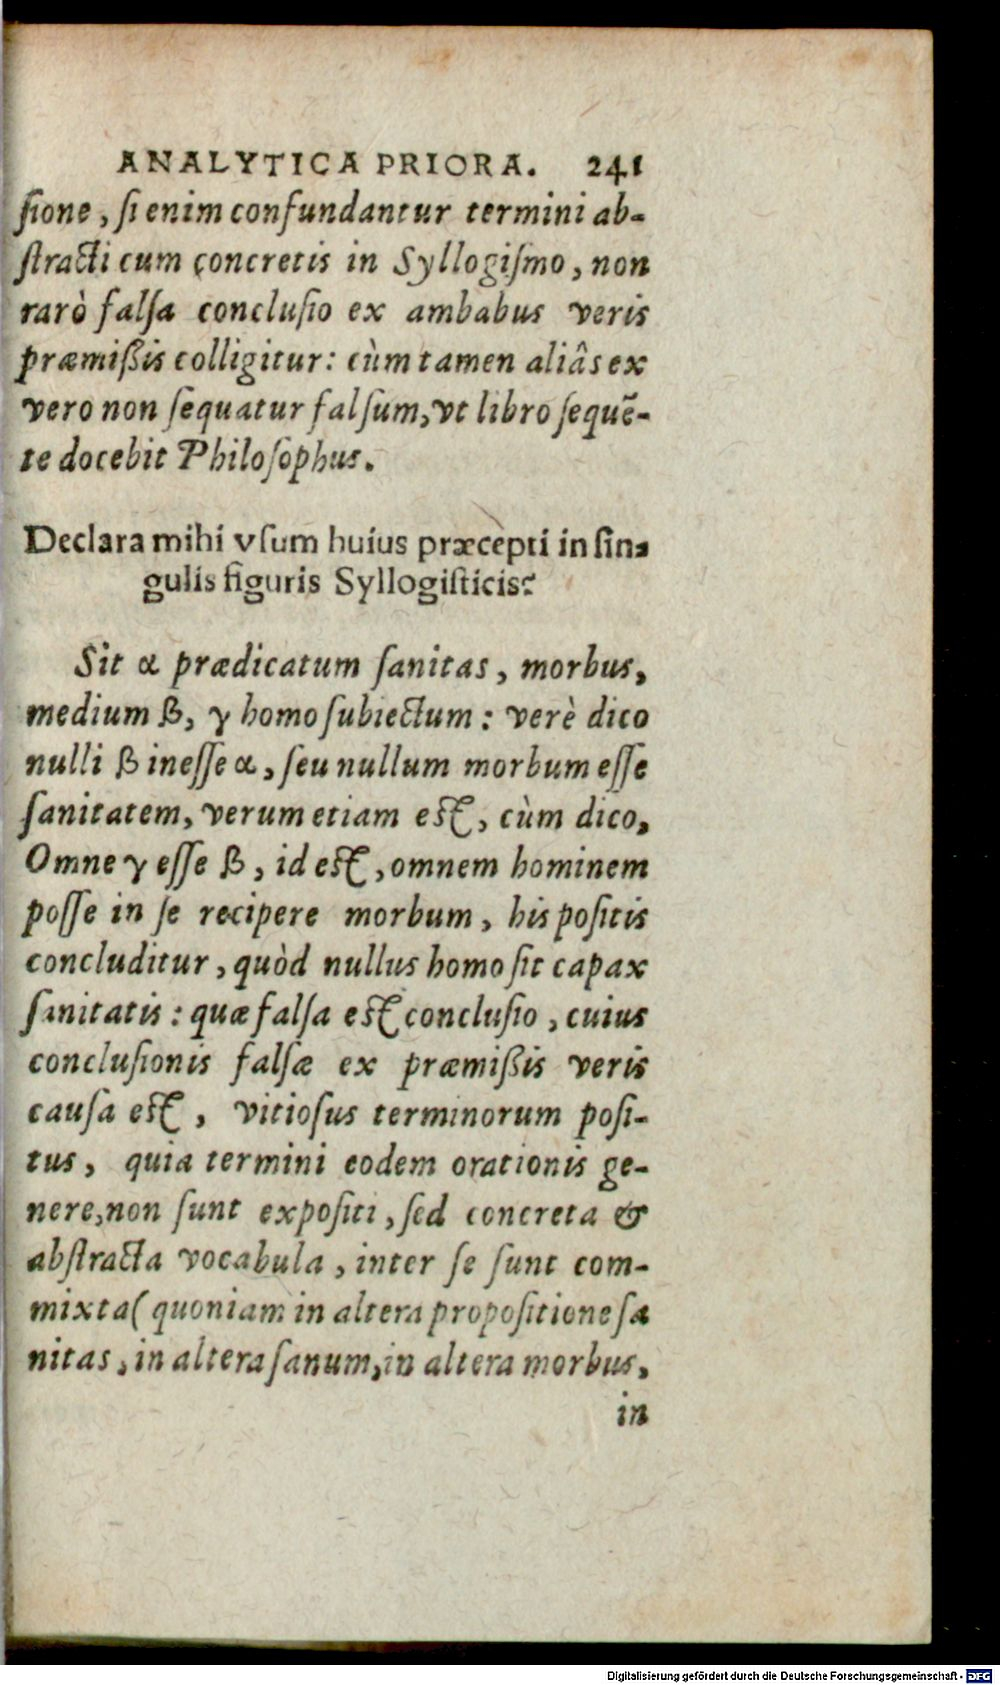 ANALYTICA PRIORA. 241
ſione, ſi enim confundantur termini ab-
ſtracti cum concretis in Syllogiſmo, non
rarò falſa concluſio ex ambabus veris
præmiſſis colligitur: cùm tamen aliâs ex
vero non ſequatur falſum, vt libro ſequẽ-
te docebit Philoſophus.
Declara mihi vſum huius præcepti in ſin-
gulis figuris Syllogiſticis?
Sit α prædicatum ſanitas, morbus,
medium β, γ homo ſubiectum: verè dico
nulli β ineſſe α, ſeu nullum morbum eſſe
ſanitatem, verum etiam eſt, cùm dico,
Omne γ eſſe β, id eſt, omnem hominem
poſſe in ſe recipere morbum, his poſitis
concluditur, quòd nullus homo ſit capax
ſanitatis: quæ falſa eſt concluſio, cuius
concluſionis falſæ ex præmiſſis veris
cauſa eſt, vitioſus terminorum poſi-
tus, quia termini eodem orationis ge-
nere, non ſunt expoſiti, ſed concreta &
abſtracta vocabula, inter ſe ſunt com-
mixta (quoniam in altera propoſitione ſa
nitas, in altera ſanum, in altera morbus,
in
Digitalisierung gefördert durch die Deutsche Forschungsgemeinschaft - DFG